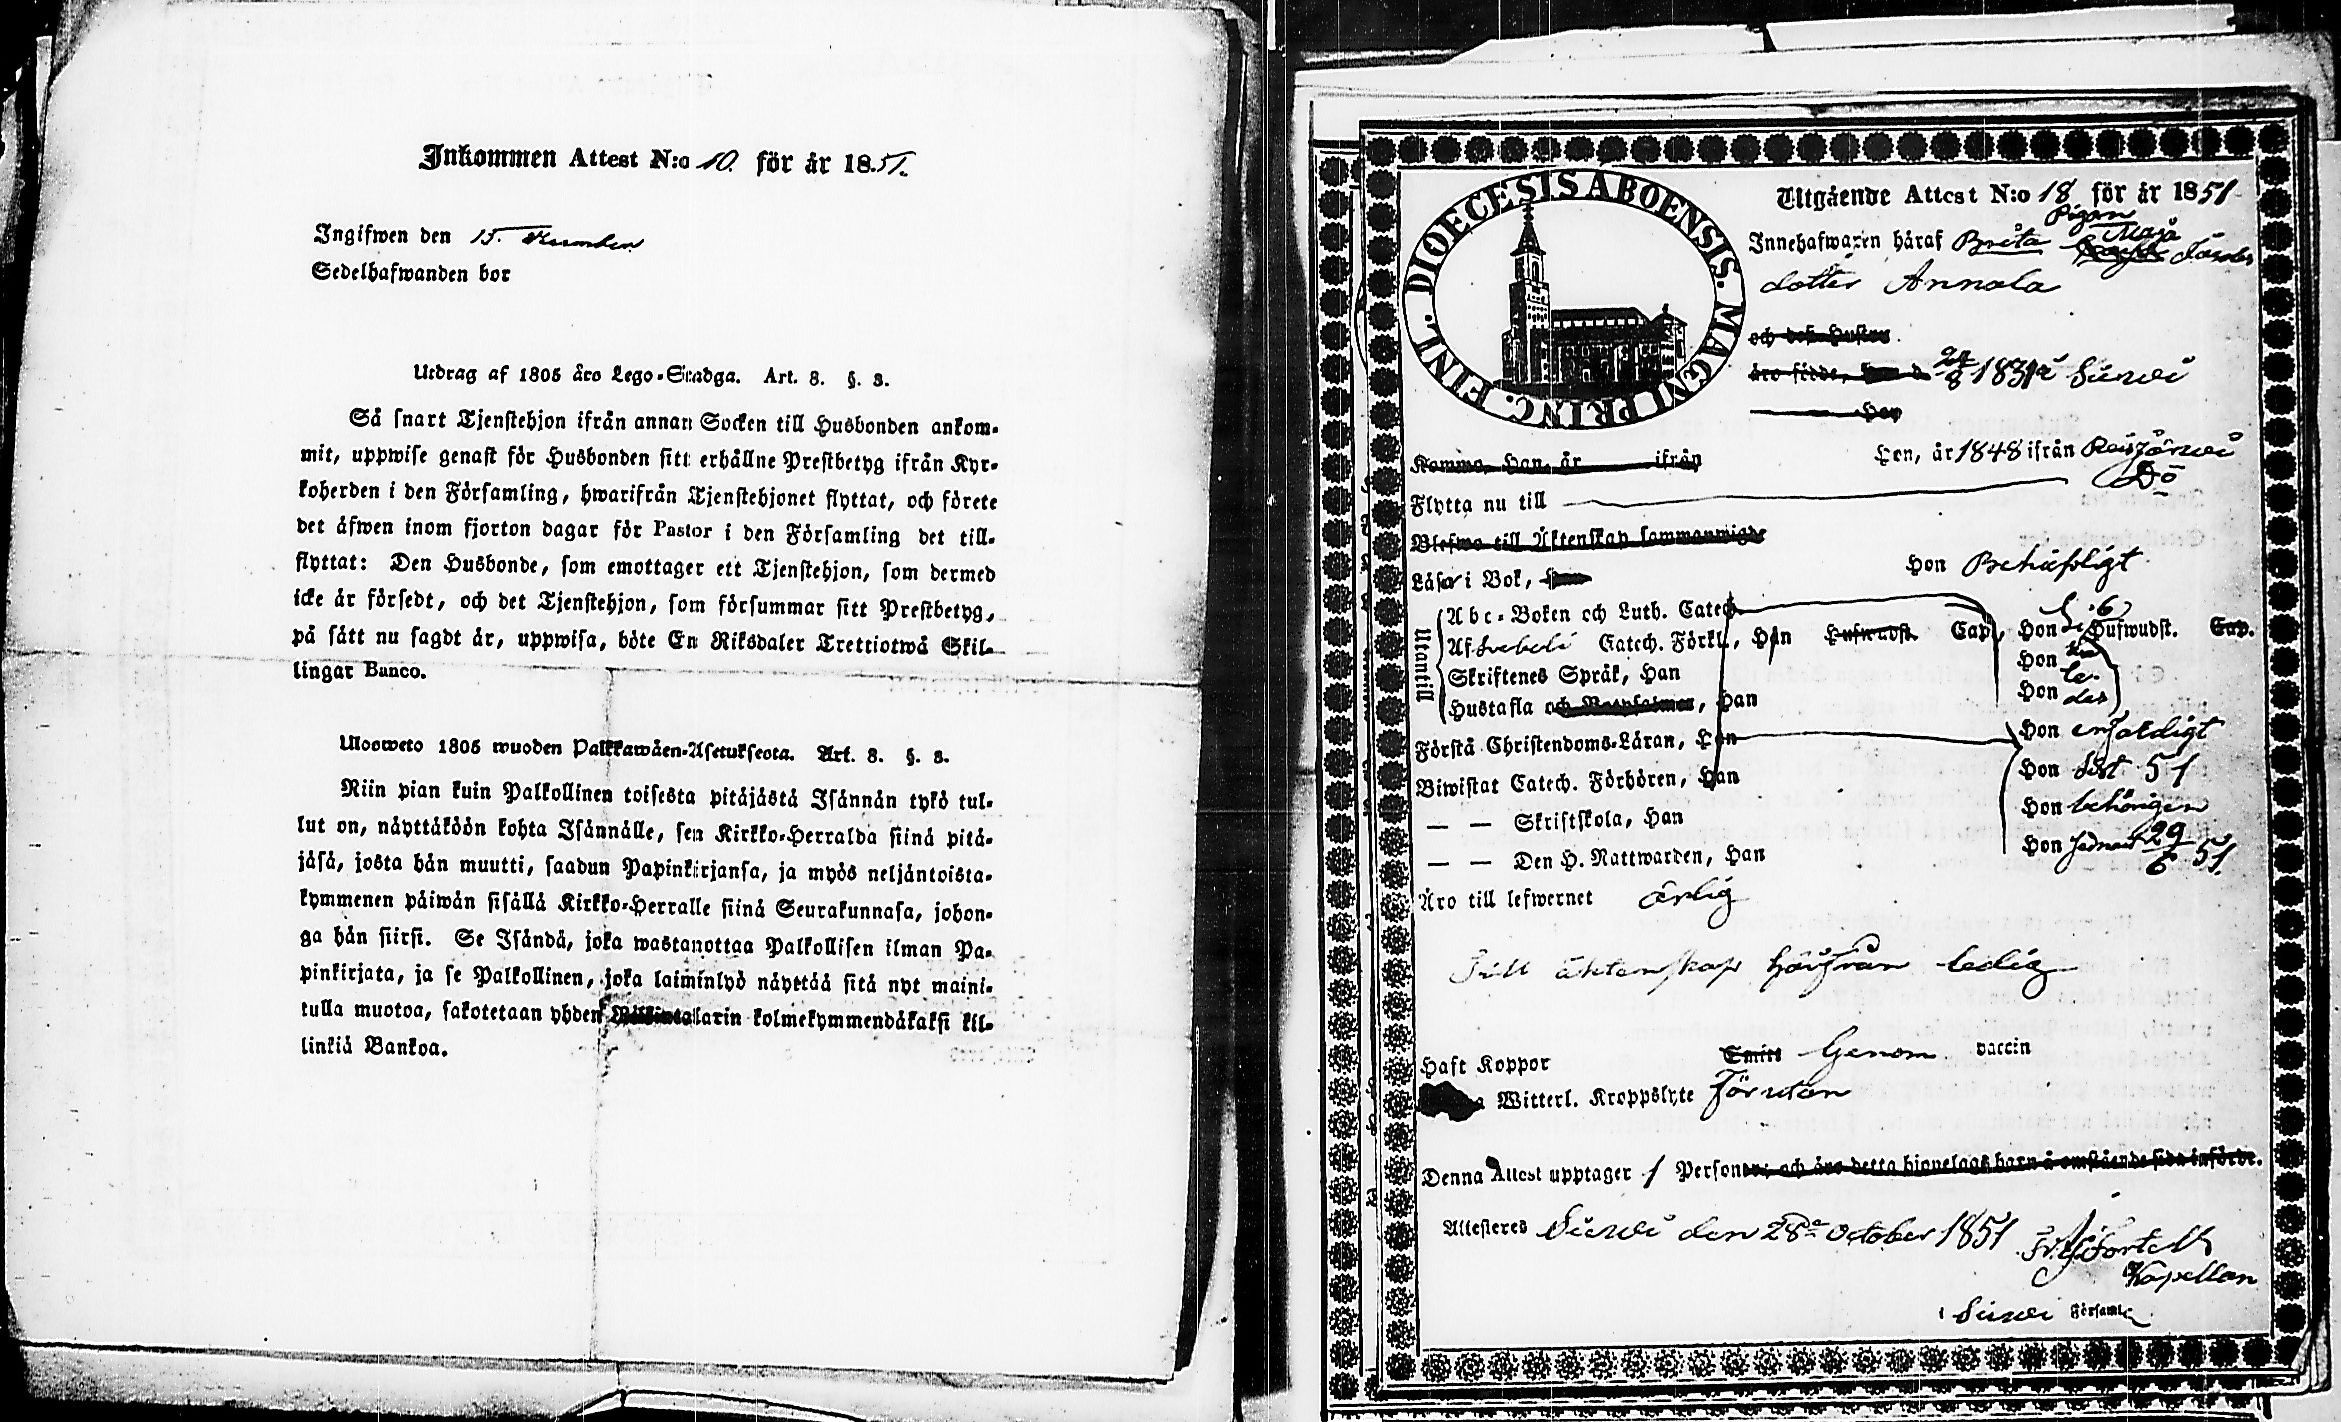 Inkommen Attest N:o 10. för år 1851.
Ingifwen den 15.
Sedelhafwanden bor
Utdrag af 1805 års Lego-Stadga. Art. 8. §. 3.
Så snart Tjenstehjon ifrån annan Socken till Husbonden ankom-
mit, uppwise genast för Husbonden sitt erhållne Prestbetyg ifrån Kyr-
koherden i den Församling, hwarifrån Tjenstehjonet flyttat, och förete
det äfwen inom fjorton dagar för Pastor i den Församling det till-
flyttat: Den Husbonde, som emottager ett Tjenstehjon, som dermed
icke är försedt, och det Tjenstehjon, som försummar sitt Prestbetyg,
på sätt nu sagdt är, uppwisa, böte En Riksdaler Trettiotwå Skil-
lingar Banco.
Ulosweto 1805 wuoden Palkkawäen-Asetuksesta. Art. 8. §. 3.
Niin pian kuin Palkollinen toisesta pitäjästä Isännän tykö tul-
lut on, näyttäköön kohta Isännälle, sen Kirkko-Herralda siinä pitä-
jäsä, josta hän muutti, saadun Papinkirjansa, ja myös neljäntoista-
kymmenen päiwän sisällä Kirkko-Herralle siinä Seurakunnasa, johon-
ga hän siirsi. Se Isändä, joka wastanottaa Palkollisen ilman Pa-
pinkirjata, ja se Palkollinen, joka laiminlyö näyttää sitä nyt maini-
tulla muotoa, sakotetaan yhden Riikintalarin kolmekymmendäkaksi kil-
linkiä Bankoa.
DIOECESIS ABOENSIS. MAGNI PRINC. FINL.
Utgående Attest N:o 18 för år 1851
Pigan
Innehafwaren häraf Brita Maja Jacobs
dotter Annala
och dess Hustru
äro födde, Han d. 24/8 1831 i Siewi
Hon
Komne, Han, år ifrån Hon, år 1848 ifrån Reisjärwi
Flytta nu till Do
Blefwo till Äktenskap sammanwigde
Läser i Bok, Han Hon Behåfligt
Utantill
Abc-Boken och Luth. Catech.
Af Svebeli Catech. Förkl., Han Hufwudst. Cap., Hon Hufwudst. Cap.
Skriftenes Språk, Han Hon
Hustafla och Botpsalmer, Han Hon
Förstå Christendoms-Läran, Han Hon enfaldigt
Biwistat Catech. Förhören, Han Hon sist 51
— — Skriftskola, Han Hon behörigen
— — Den H. Nattwarden, Han Hon sednast 29/6 51.
Äro till lefwernet ärlig
Till äktenskap härifrån ledig
Haft Koppor Genom vaccin
Witterl. Kroppslyte Förutan
Denna Attest upptager 1 Personer, och äro detta hjonelags barn å omstående sida införde.
Attesteras Siewi den 28de October 1851
Kapellan
i Siewi Församl.